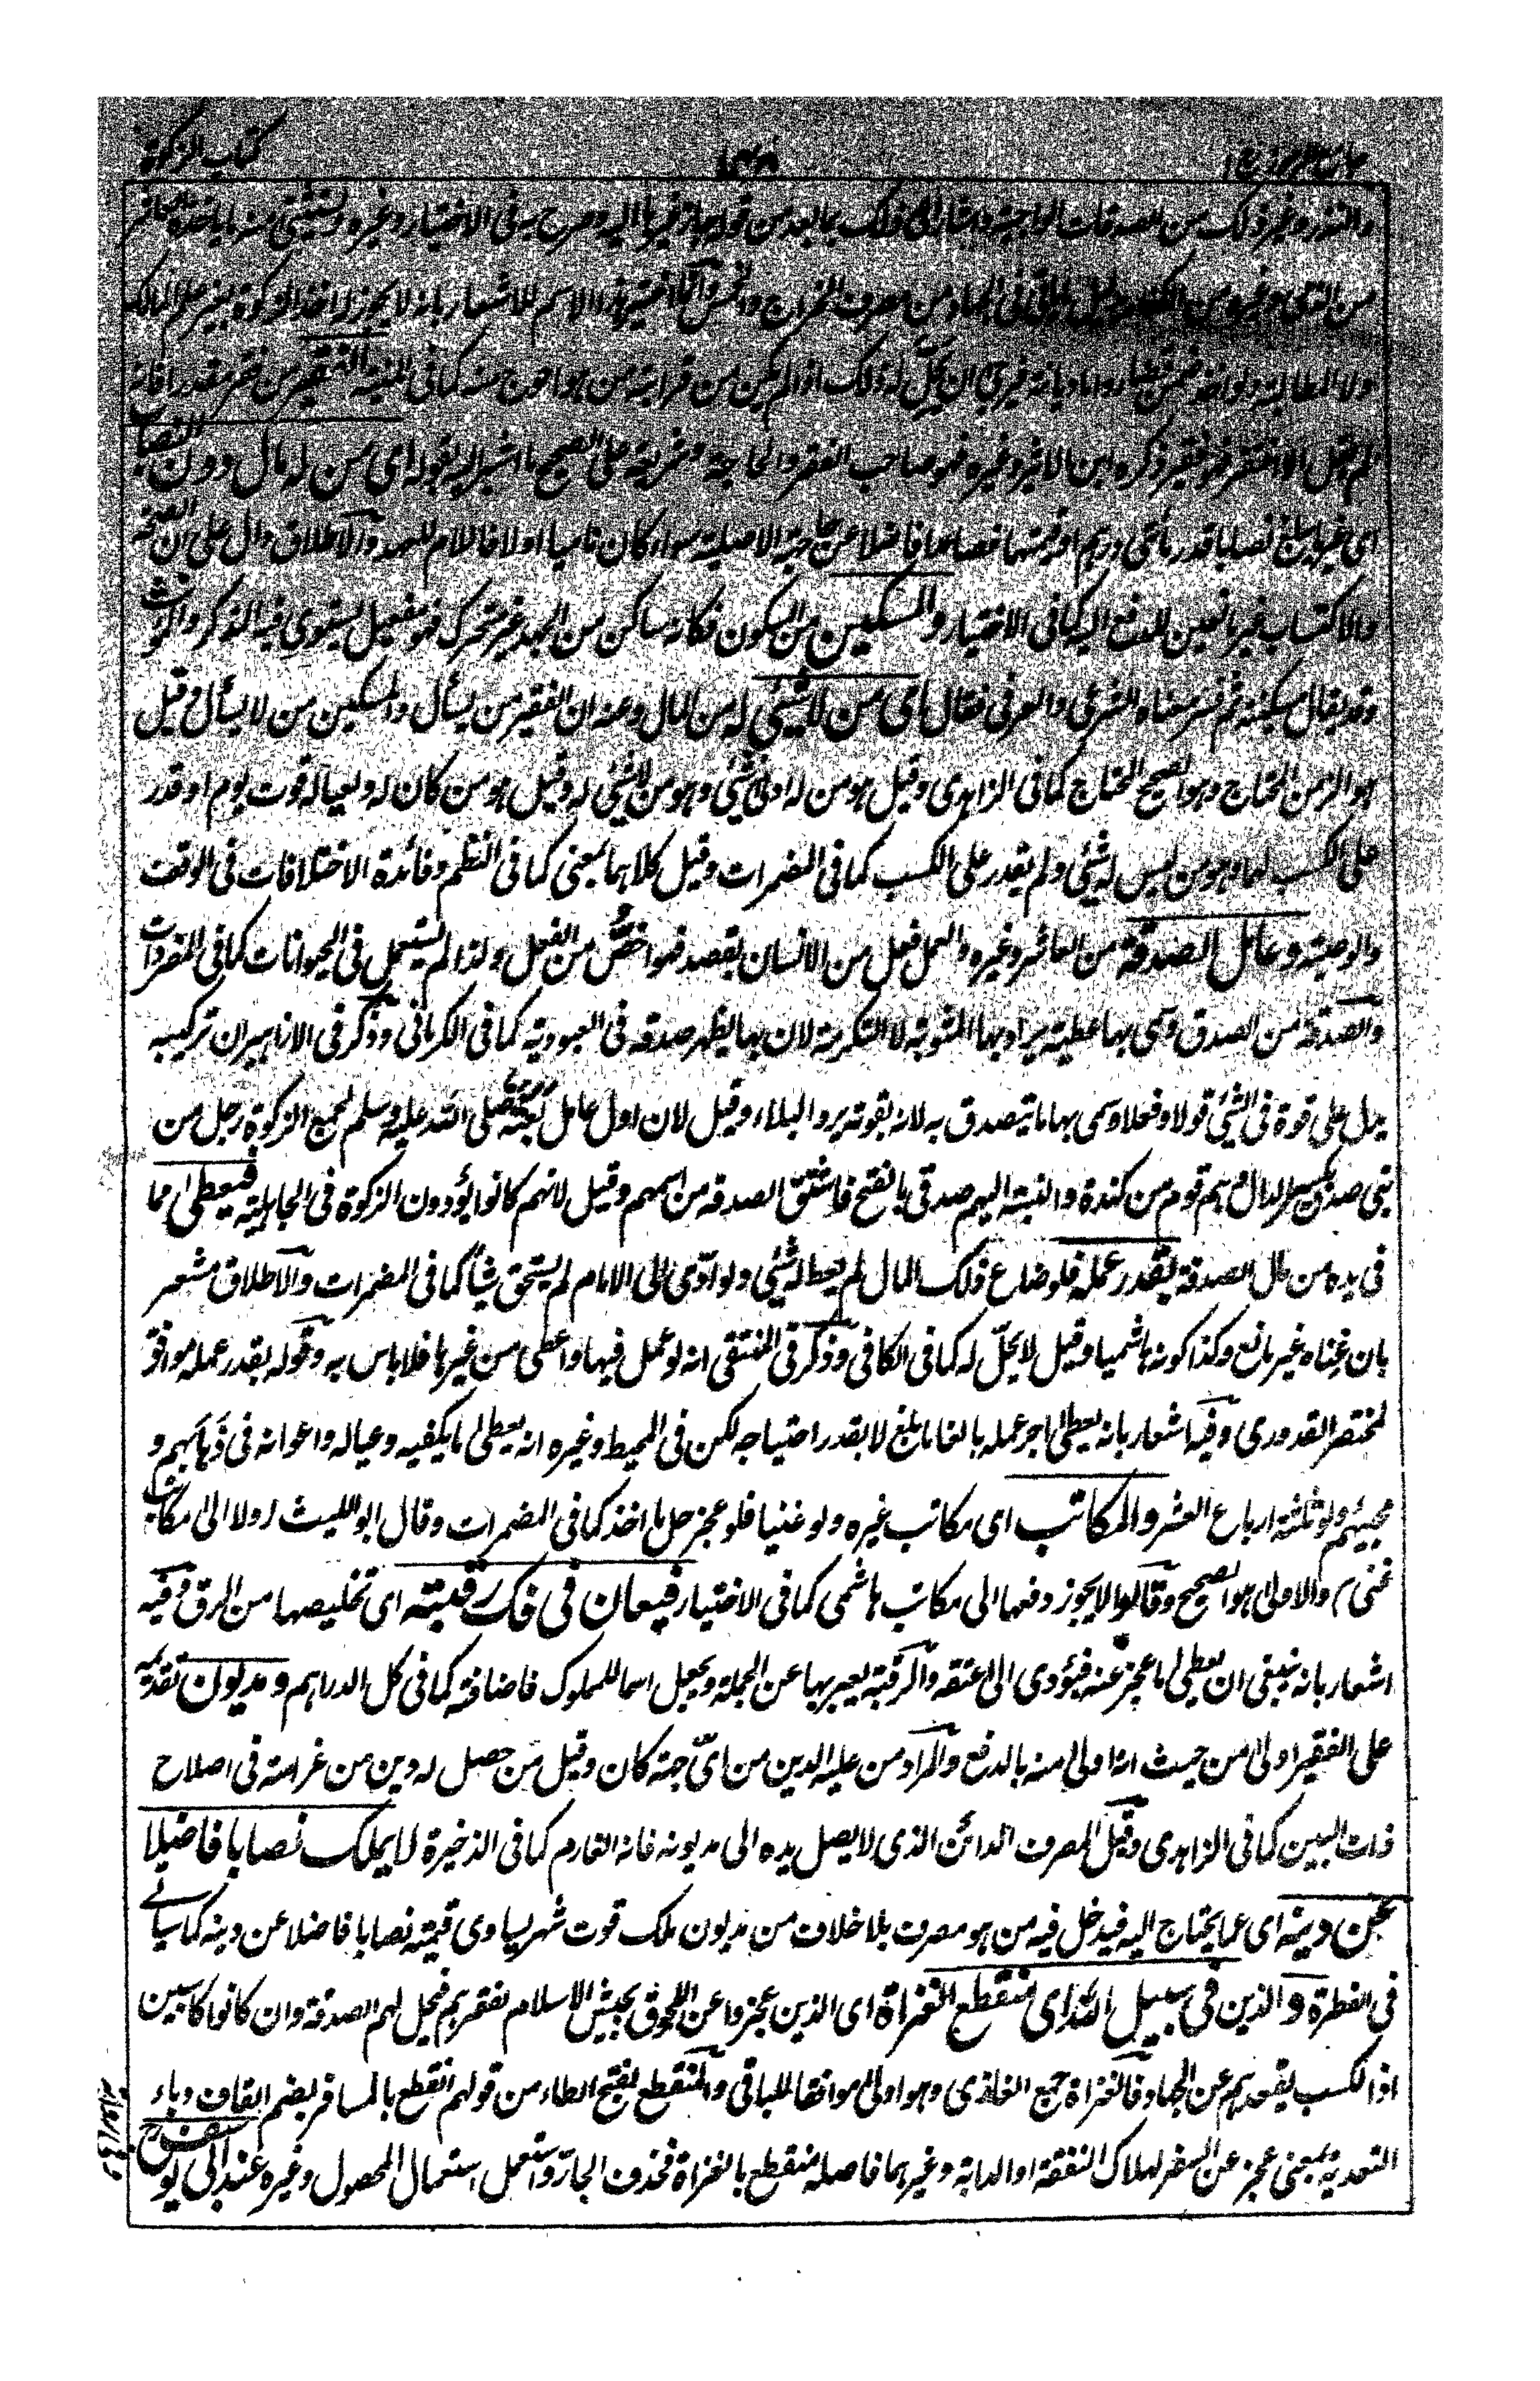 كتاب الزكوة
والنذر وغير ذلك من الصدقات الواجبة واشار الى ذلك بما بعد من قوله وغيرها اليه وصرح به فى الاختيار وغيره ويستثنى منه ما ياخذه العاشر
من الذمى وغيره من مصرف الخراج هذا الاسم للاشعار بانه لا يجوز له اخذ الزكوة بغير علم المالك
ولا المطالبة ولو اخذ ضمن قضاء واما ديانة فيرجى ان يحل له ذلك اذا لم يكن من قرابته من هو احوج منه كما فى المنية الفقير من فقر مقدرا فانه
لم يقل الا افتقر فهو فقير ذكره ابن الاثير وغيره فهو صاحب الفقر والحاجة وشريعة على الصحيح ما اشير اليه بقوله اى من له مال دون النصاب
اى غير بالغ نصابا قدر مأتى درهم او قيمتها فصاعدا فاضلا عن حاجته الاصلية سواء كان ناميا او لا فاللام للعهد والاطلاق دال على ان الصحة
والاكتساب غير مانعين للدفع اليه كما فى الاختيار والمسكين من السكون فكانه ساكن من الجهد غير متحرك فهو مفعيل يستوى فيه المذكر والمؤنث
وقد يقال مسكينة ثم فسر معناه الشرعى والعرفى فقال اى من لا شيئى له من المال وعنه ان الفقير من يسأل والمسكين من لا يسأل وقيل
هو الزمن المحتاج وهو الصحيح المحتاج كما فى الزاهدى وقيل هو من له ادنى شيئى وهو من لا شيئى له وقيل هو من كان له ولعياله قوت يوم او قدر
على الكسب لهما وهو من ليس له شيئى ولم يقدر على الكسب كما فى المضمرات وقيل كلاهما بمعنى كما فى النظم وفائدة الاختلافات فى الوقف
والوصية وعامل الصدقة من العاشر وغيره والعمل فعل من الانسان بقصد فهو اخص من الفعل ولذا لم يستعمل فى الحيوانات كما فى المفردات
والصدقة من الصدق وسمى بها عطية يراد بها المثوبة لا التكرمة لان بها يظهر صدقه فى العبودية كما فى الكرمانى وذكر فى الازاهير ان تركيبه
يدل على قوة فى الشيئى قولا وفعلا وسمى بها ما يتصدق به لانه بقوته يرد البلاء وقيل لان اول عامل بعثه صلى الله عليه وسلم لجمع الزكوة رجل من
بنى صدق بكسر الدال هم قوم من كندة والنسبة اليهم صدقى بالفتح فاشتق الصدقة من اسمهم وقيل لانهم كانوا يؤدون الزكوة فى الجاهلية فيعطى مما
فى يده من مال الصدقة بقدر عمله فلو ضاع ذلك المال لم يعط له شيئى ولو ادّى الى الامام لم يستحق شيأ كما فى المضمرات والاطلاق مشعر
بان غناه غير مانع وكذا كونه هاشميا وقيل لا يحلّ له كما فى الكافى وذكر فى المنتقى انه لو عمل فيها واعطى من غيرها فلا باس به وقوله بقدر عمله موافق
لمختصر القدورى وفيه اشعار بانه يعطى اجر عمله بالغا ما بلغ لا بقدر احتياجه لكن فى المحيط وغيره انه يعطى ما يكفيه وعياله واعوانه فى ذهابهم و
مجيئهم ولو ثلثة ارباع العشر والمكاتب اى مكاتب غيره ولو غنيا فلو عجز حل ما اخذ كما فى المضمرات وقال ابو الليث لا ولا الى مكاتب
غنى والاولى هو الصحيح وقالوا لا يجوز دفعها الى مكاتب هاشمى كما فى الاختيار فيعان فى فك رقبته اى تخليصها من الرق وفيه
اشعار بانه ينبغى ان يعطى ما عجز عنه فيؤدى الى عتقه والرقبة يعبر بها عن الجملة ويجعل اسما للمملوك فاضافة كما فى كل الدراهم ومديون تقديمه
على الفقير اولى من حيث انه اولى منه بالدفع والمراد من عليه الدين من اىّ جهة كان وقيل من حصل له دين من غرامته فى اصلاح
ذات البين كما فى الزاهدى وقيل المصرف الدائن الذى لا يصل يده الى مديونه فانه الغارم كما فى الذخيرة لا يملك نصابا فاضلا
عن دينه اى عما يحتاج اليه فيدخل فيه من هو مصرف بلا خلاف من مديون ملك قوت شهر يساوى قيمته نصابا فاضلا عن دينه كما سياتى
فى الفطرة والذين فى سبيل الله اى منقطع الغزاة اى الذين عجزوا عن اللحوق بجيش الاسلام لفقرهم فيحل لهم الصدقة وان كانوا كاسبين
اذ الكسب يقعدهم عن الجهاد فالغزاة جمع الغازى وهو اولى موافقا للباقى والمنقطع بفتح الطاء من قولهم انقطع بالمسافر بضم القاف وباء
التعدية بمعنى عجز عن السفر لهلاك النفقة او الدابة وغيرهما فاصله منقطع بالغزاة فحذف الجارّ واستعمل استعمال المحصول وغيره عند ابى يوسف رح